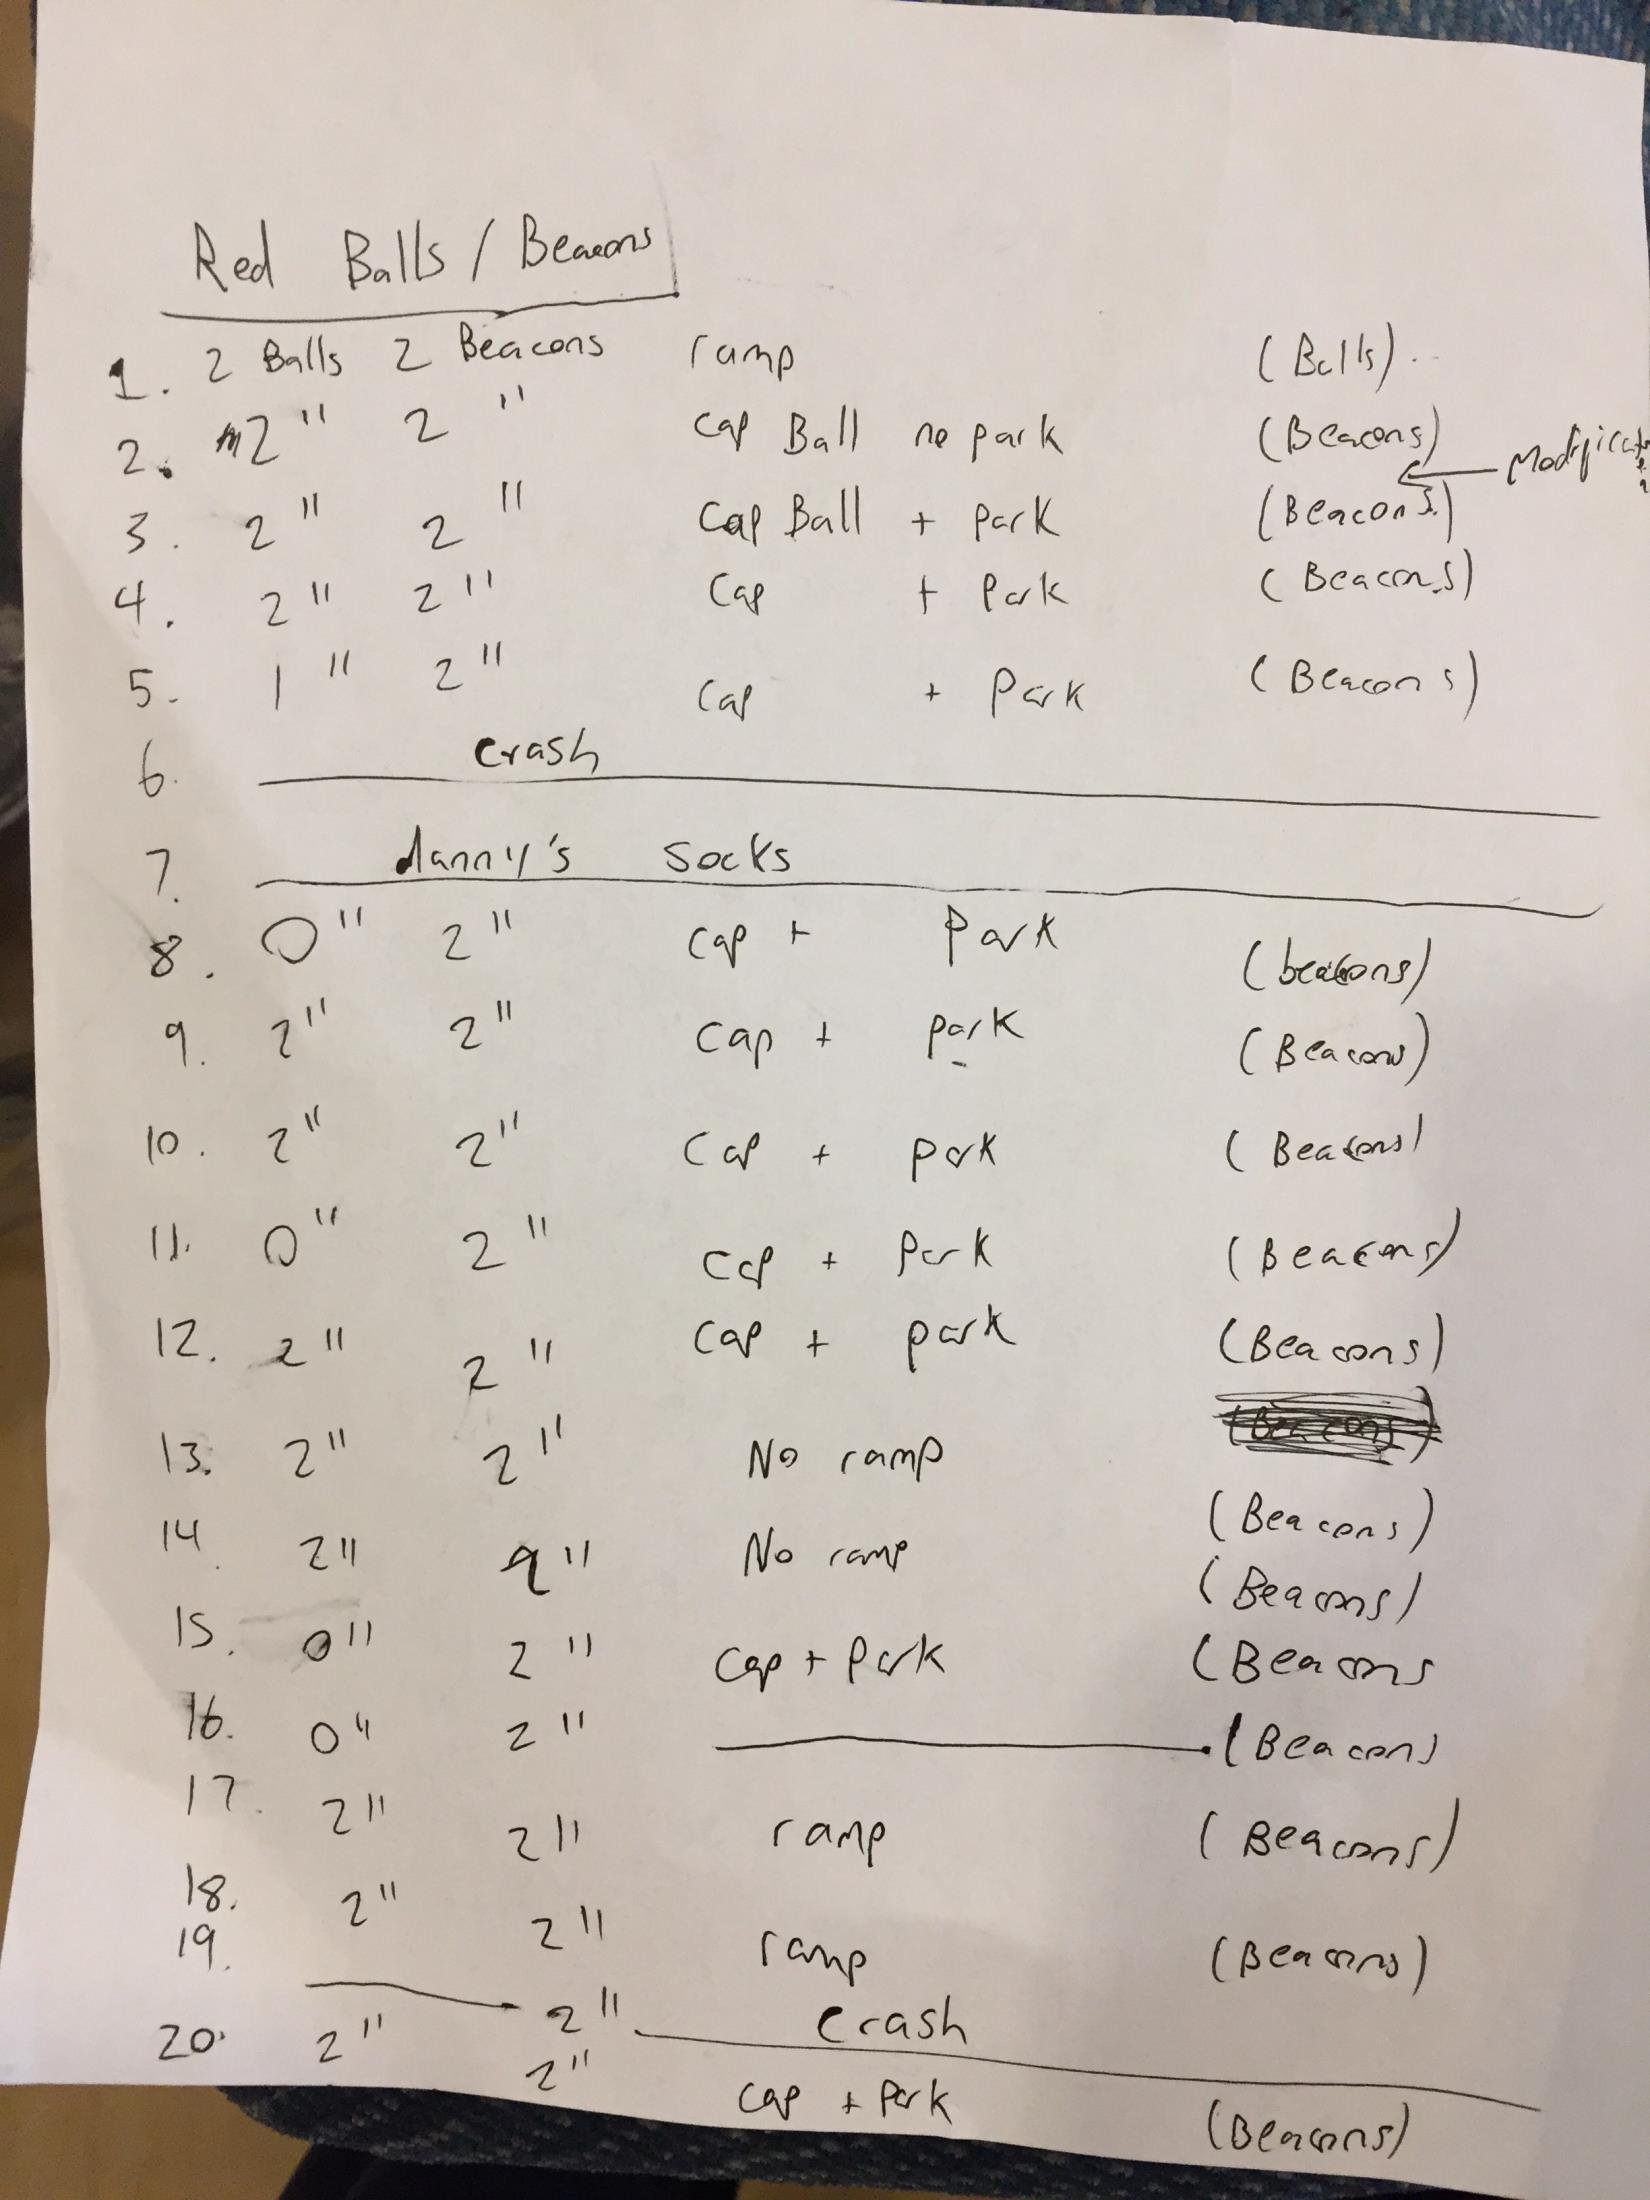 Red Balls / Beacons
1. 2 Balls 2 Beacons ramp (Balls)
2. 2 " 2 " Cap Ball no park (Beacons)
3. 2 " 2 " Cap Ball + Park (Beacons)
4. 2 " 2 " Cap + Park (Beacons)
5. 1 " 2 " Cap + Park (Beacons)
6. crash
7. danny's socks
8. 0 " 2 " Cap + Park (beacons)
9. 2 " 2 " Cap + park (Beacons)
10. 2 " 2 " Cap + park (Beacons)
11. 0 " 2 " Cap + Park (Beacons)
12. 2 " 2 " Cap + park (Beacons)
13. 2 " 2 " No ramp (Beacons)
14. 2 " " No ramp (Beacons)
15. 0 " 2 " Cap + Park (Beacons
16. 0 " 2 " (Beacons
17. 2 " 2 " ramp (Beacons)
18. 2 " 2 " ramp (Beacons)
19. 2 " crash
20. 2 " 2 " Cap + Park (Beacons)